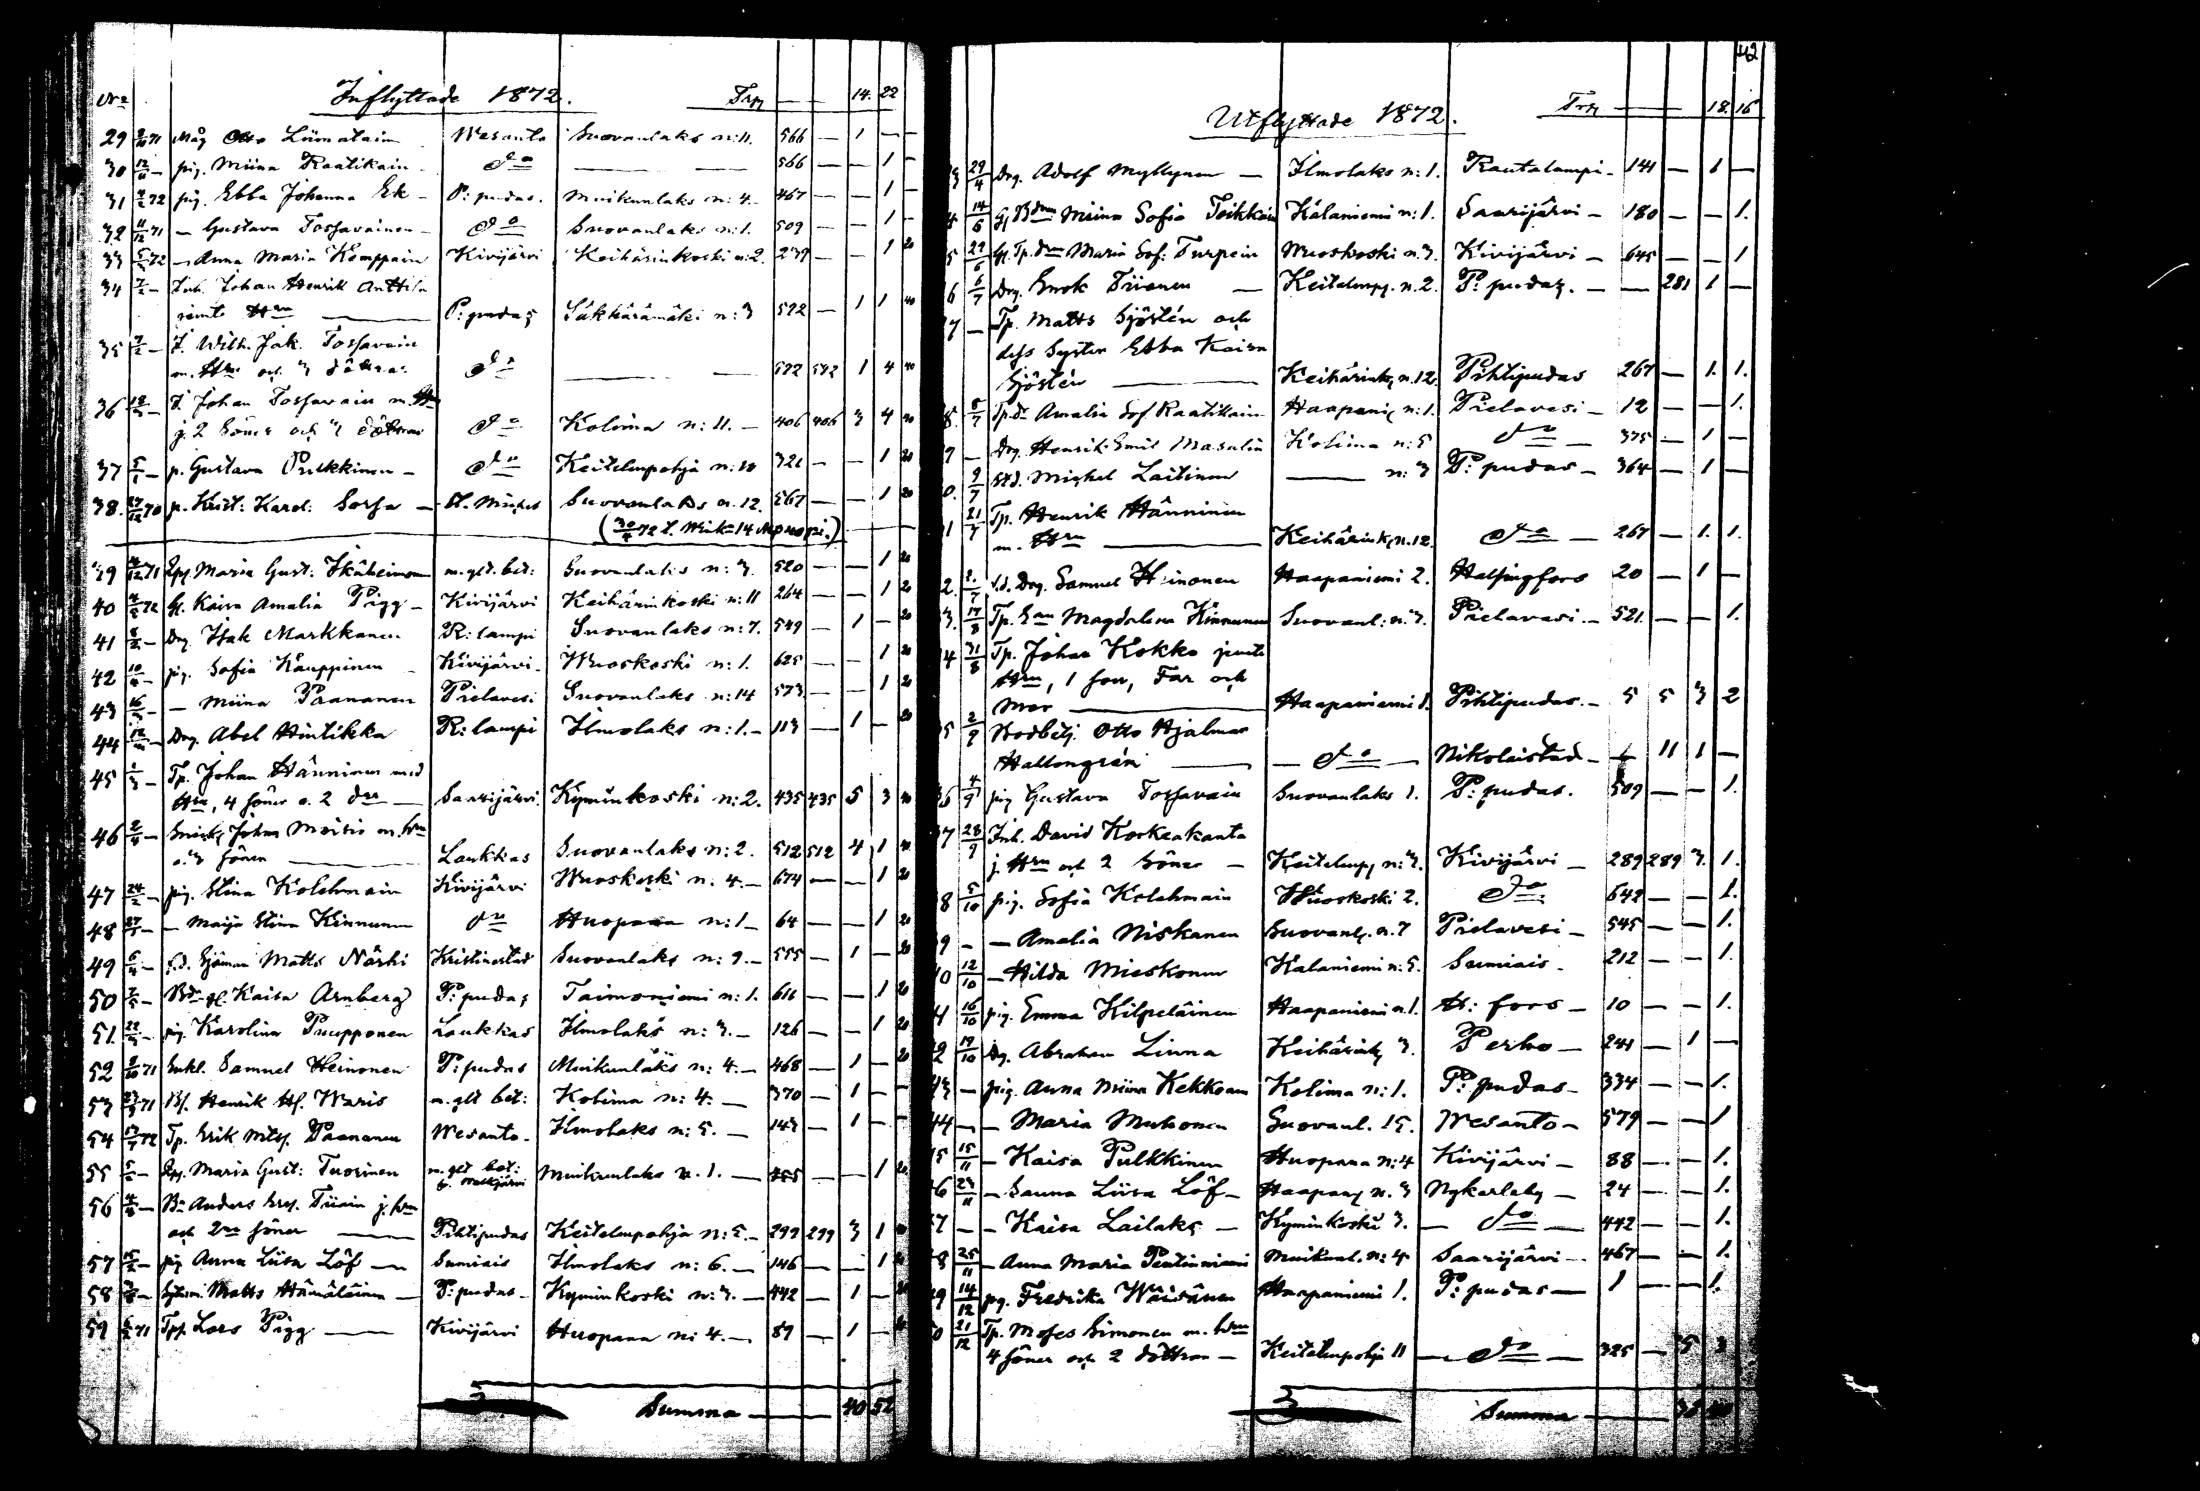 No Inflyttade 1872. Trp — — 14. 22
29 71 Måg Otto Liimatain Wesanto Suovanlaks n:11. 566 — 1 — —
30 12/11 — pig. Miina Raatikain — do — — 566 — — 1 —
31 72 pig. Ebba Johanna Ek — P: pudas. Muikunlaks n: 4. 467 — — 1 —
32 11/12 71 — Gustava Tossavainen — do Suovanlaks n: 1. 509 — — 1 —
33 72 — Anna Maria Kemppain Kivijärvi Keihärinkoski n: 2. 239 — — 1 20
34 7/2 — Inh. Johan Henrik Anttila
jemte Hru — P: pudas Säkkärämäki n: 3 592 — 1 1 40
35 7/2 — I. Wilh. Jak. Tossavain
m. Hru och 3 döttrar do — — 592 592 1 4 40
36 I. Johan Tossavain m. Hru
j. 2 Söner och 3 döttrar do Kolima n: 11. — 406 406 3 4 40
37 — p. Gustava Pulkkinen — do Keitelempohja n: 10 321 — — 1 20
38. 27/12 70 p. Krist: Karol: Sorsa — St. Michel Suovanlaks n. 12. 567 — — 1 20
39 12 71 Maria Gust: Ikäheimon m. glt. bet: Suovanlaks n: 3. 520 — — 1 20
40 72 Kaisa Amalia Pigg — Kivijärvi Keihärinkoski n: 11 264 — — 1 20
41 — Drg. Isak Markkanen R: lampi Suovanlaks n: 7. 549 — 1 — 20
42 10 — pig. Sofia Kauppinen — Kivijärvi — Wuoskoski n: 1. 625 — — 1 20
43 16 — — Miina Paananen Pielavesi Suovanlaks n: 14 573 — — 1 20
44 12 — Drg. Abel Hintikka R: lampi Ilmolaks n: 1. — 113 — 1 — 20
45 — Tp. Johan Hänninen med
Hru, 4 söner o. 2 drar — Saarijärvi Kyminkoski n: 2. 435 435 5 3 40
46 — Johan Moisio m. hru
o. 3 söner — Laukkas Suovanlaks n: 2. 512 512 4 1 40
47 24 — pig. Stina Kolehmain Kivijärvi Wuoskoski n: 4. — 674 — — 1 20
48 27 — — Maija Stina Kinnunen do Huopana n: 1 — 64 — — 1 20
49 — f.d. Sjöman Matts Närhi Kristinestad Suovanlaks n: 9. — 555 — 1 — 20
50 — Kaisa Arnberg P: pudas Taimoniemi n: 1. 616 — — 1 20
51. 22 — pig. Karolina Puupponen Laukkas Ilmolaks n: 3. — 126 — — 1 20
52 71 Enkl. Samuel Heinonen P: pudas Muikunlaks n: 4. — 468 — 1 — 20
53 71 Henrik Waris m. glt bet: Kolima n: 4. — 370 — 1 — —
54 72 Tp. Erik Paananen Wesanto — Ilmolaks n: 5. — 143 — 1 — —
55 — Maria Gust: Tuorinen m. glt bet: Muikunlaks n. 1. — — 1 20
56 — Anders Tiiain j. hru
och söner — Pihtipudas Keitelempohja n: 5. — 299 299 3 1
57 — pig Anna Liisa Löf — Sumiais Ilmolaks n: 6. — 146 — — 1
58 — Matts Hämäläinen — P: pudas — Kyminkoski n: 3. — 442 — 1 —
59 71 Lars Pigg — Kivijärvi Huopana n: 4. — 87 — 1 —
Summa — 40 52
42
Utflyttade 1872. Trp — 18. 16
3 29/4 Drg. Adolf Myllynen — Ilmolaks n: 1. Rautalampi — 141 — 1 —
4 14/6 Miina Sofia Toikkain Kalaniemi n: 1. Saarijärvi — 180 — — 1.
5 29/6 Maria Sof: Turpein Wuoskoski n. 3. Kivijärvi — 645 — — 1
6 6/7 Drg. Enok Tiionen — Keitelemp. n. 2. P: pudas. — — 281 1 —
7 — Tp. Matts Sjöstén och
dess Syster Ebba Kaisa
Sjöstén — Keihärink. n. 12. Pihtipudas 267 — 1. 1.
8. 5/7 Amalia Sof Raatikain Haapanie n: 1. Pielavesi — 12 — — 1.
9 — Drg. Henrik Emil Masalin Kolima n: 5 do — 375 — 1 —
0. 9/7 Michel Laitinen — n: 3 P: pudas — 364 — 1 —
1 21/7 Tp. Henrik Hänninen
m. Hru — Keihärink n. 12. do — 267 — 1. 1.
2. /7 f.d. Drg. Samuel Heinonen Haapaniemi 2. Helsingfors 20 — 1 —
3. 17/8 Tp. Magdalena Kinnunen Suovanl: n: 3. Pielavesi. — 521. — — 1.
4 31/8 Tp. Johan Kokko jemte
Hru, 1 son, Far och
Mor — Haapaniemi 1. Pihtipudas. — 5 5 3 2
5 2/9 Otto Hjalmar
Hallongrén — do — Nikolaistad — 11 1 —
36 4/9 pig Gustava Tossavain Suovanlaks 1. P: pudas. 509 — — 1.
37 28/9 Inh. David Koskeakanta
j. Hru och 2 Söner — Keitelemp n: 3. Kivijärvi — 289 289 3. 1.
8 5/10 pig. Sofia Kolehmain Wuoskoski 2. do — 642 — — 1.
9 — — Amalia Niskanen Suovanl. n. 7 Pielavesi — 545 — — 1.
0 12/10 — Hilda Mieskonen Kalaniemi n: 5. Sumiais. 212 — — 1.
1 16/10 pig. Emma Kilpeläinen Haapaniemi n. 1. H: fors — 10 — — 1.
2 19/10 Dg. Abraham Linna Keihärink 3. Perho — 241 — 1 —
43 — pig. Anna Miina Kekkonen Kolima n: 1. P: pudas — 334 — — 1.
44 — — Maria Muhonen Suovanl. 15. Wesanto — 579 — — 1
5 15/11 — Kaisa Pulkkinen Huopana n: 4 Kivijärvi — 88 — — 1.
6 23/11 — Sanna Liisa Löf — Haapan n. 3 Nykarleby — 24 — — 1.
7 — — Kaisa Lailaks — Kyminkoski 3. — do — 442 — — 1.
8 25/11 — Anna Maria Pentinniemi Muikunl. n: 4 Saarijärvi — 467 — — 1.
9 14/12 pig. Fredrika Wäisänen Haapaniemi 1. P: pudas — 1 — — 1.
0 21/12 Tp. Moses Simonen m. hru
4 söner och 2 döttrar — Keitelempohja 11 — do — 325 — 5 3
Summa —